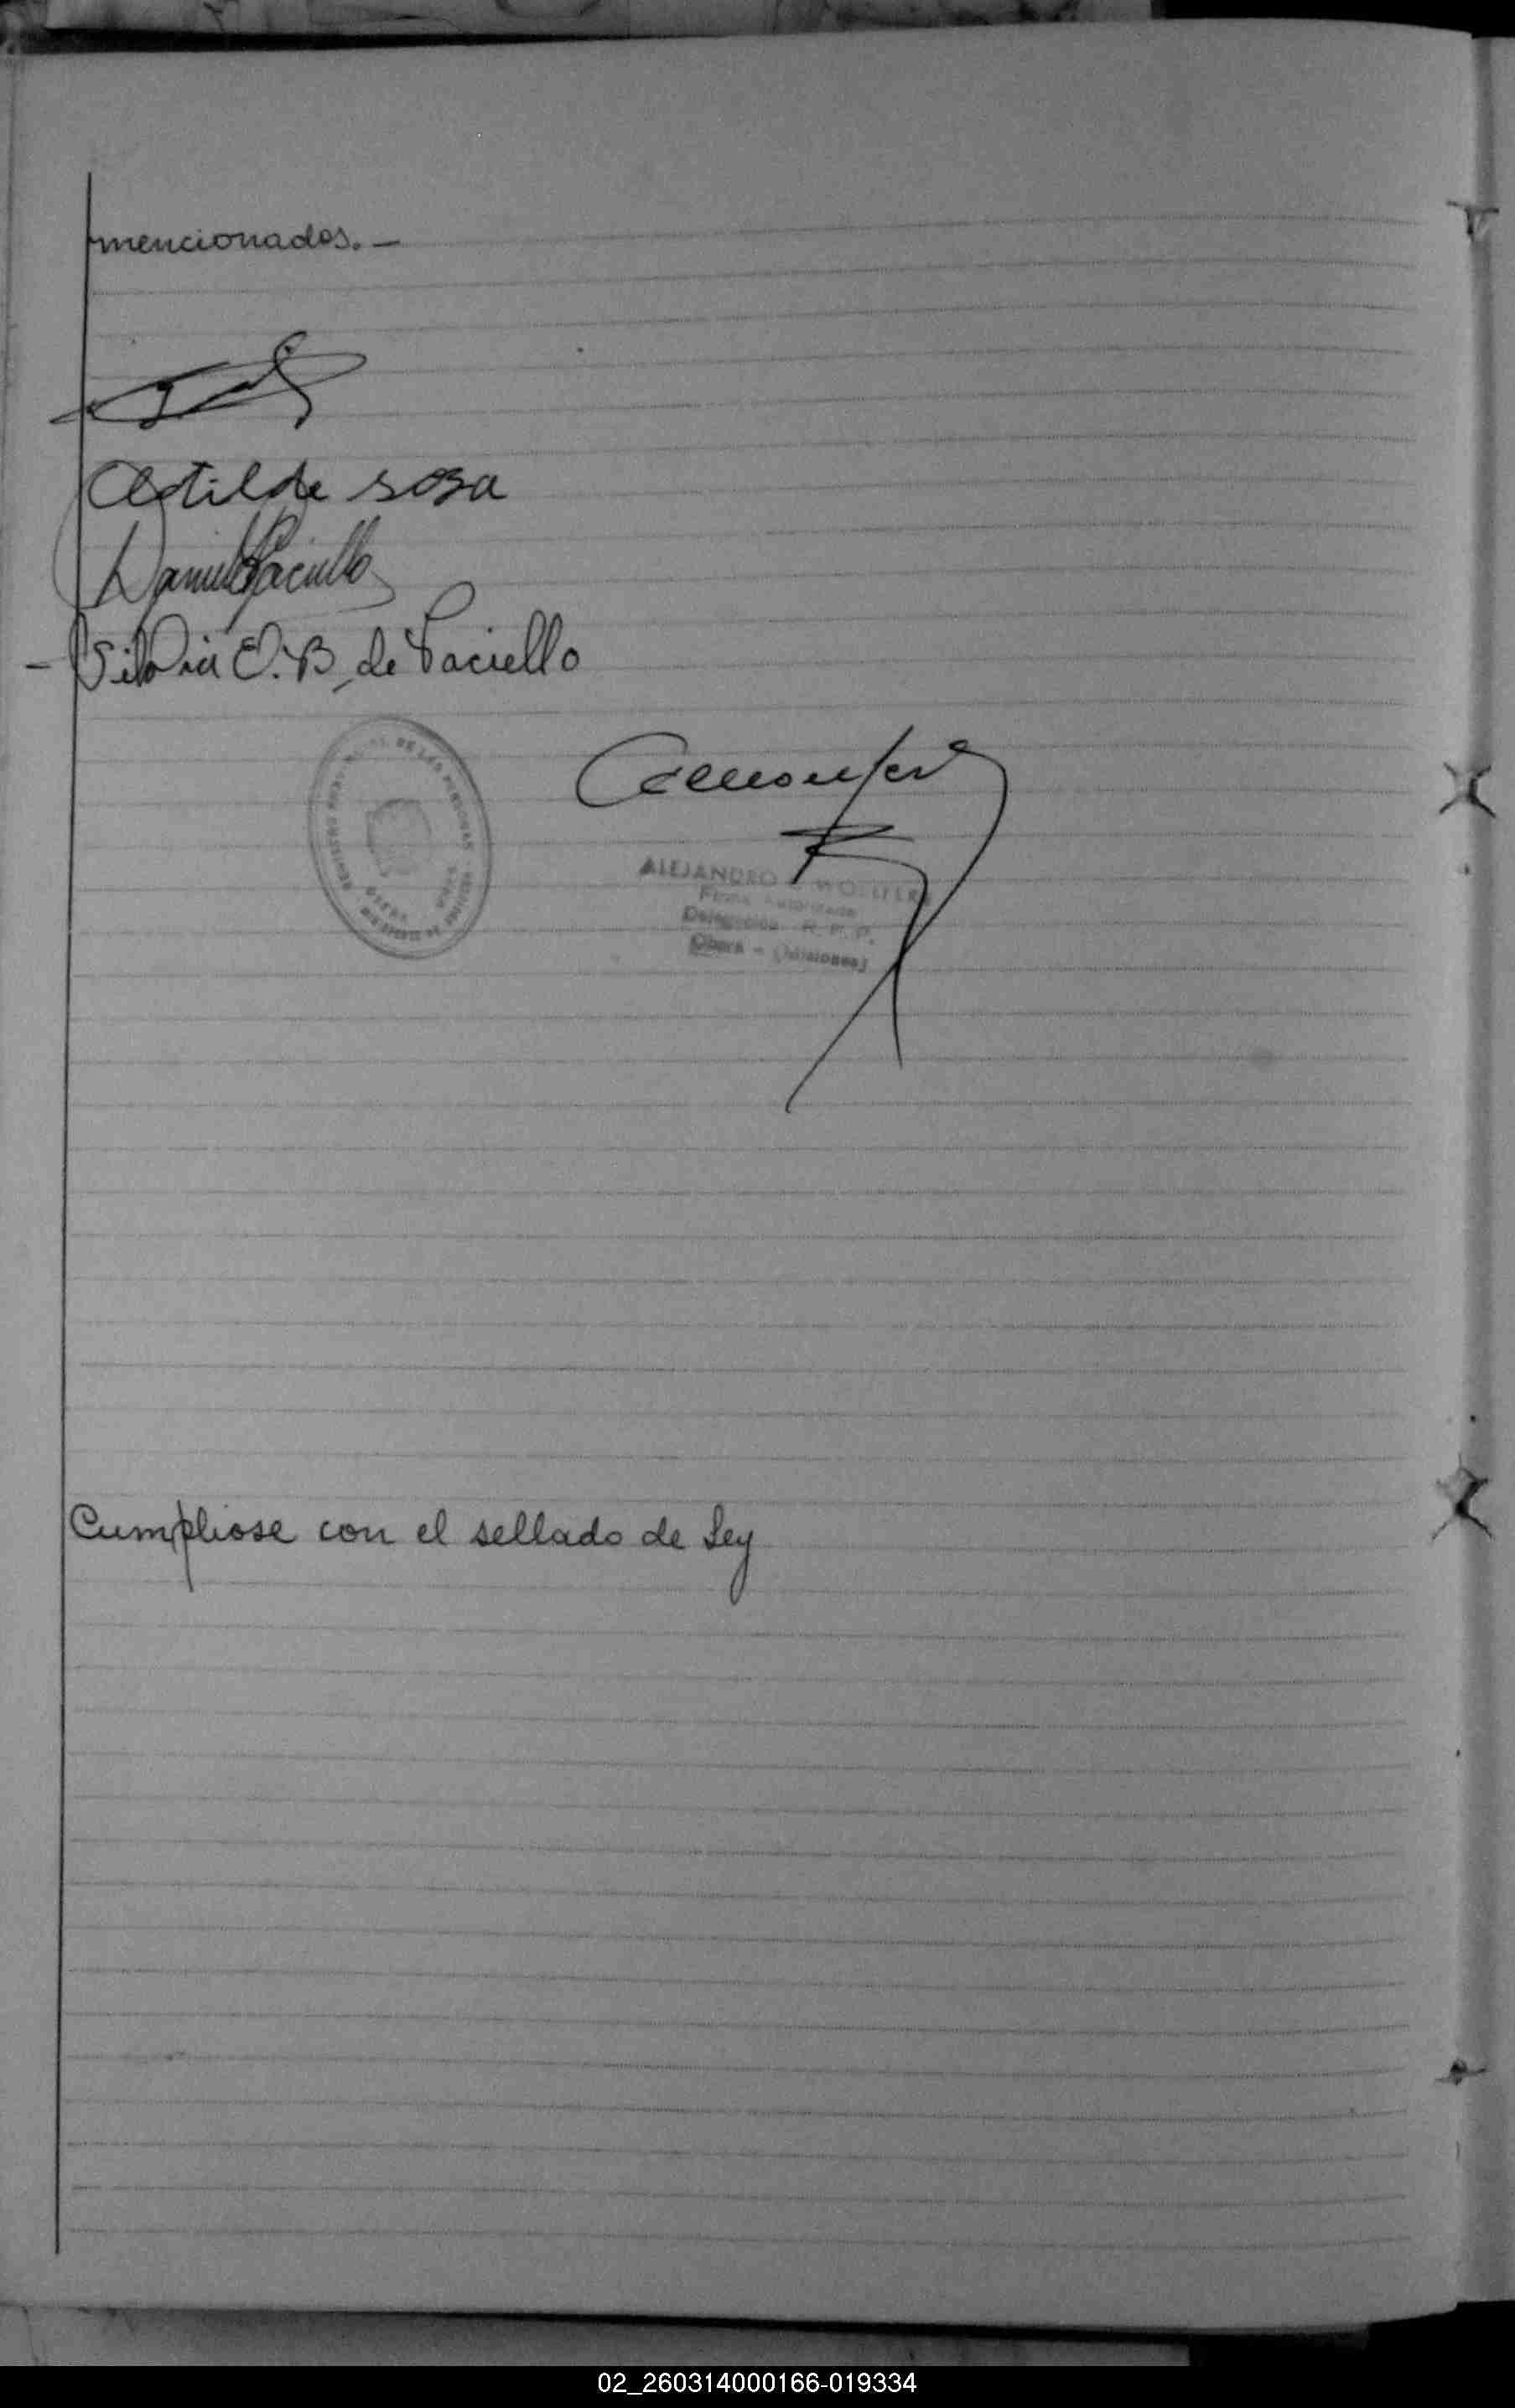 mencionados.—
Clotilde sosa
Daniel Paciello
Silvia E. B. de Paciello
DE LAS PERSONAS
ALEJANDRO
Firma Autorizada
Delegación R. P. P.
Oberá - (Misiones)
Cumpliose con el sellado de Ley
02_260314000166-019334